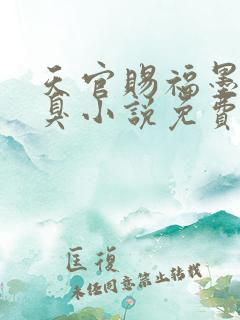 天官赐福墨
臭小说免费
匡復
未经同意禁止转载